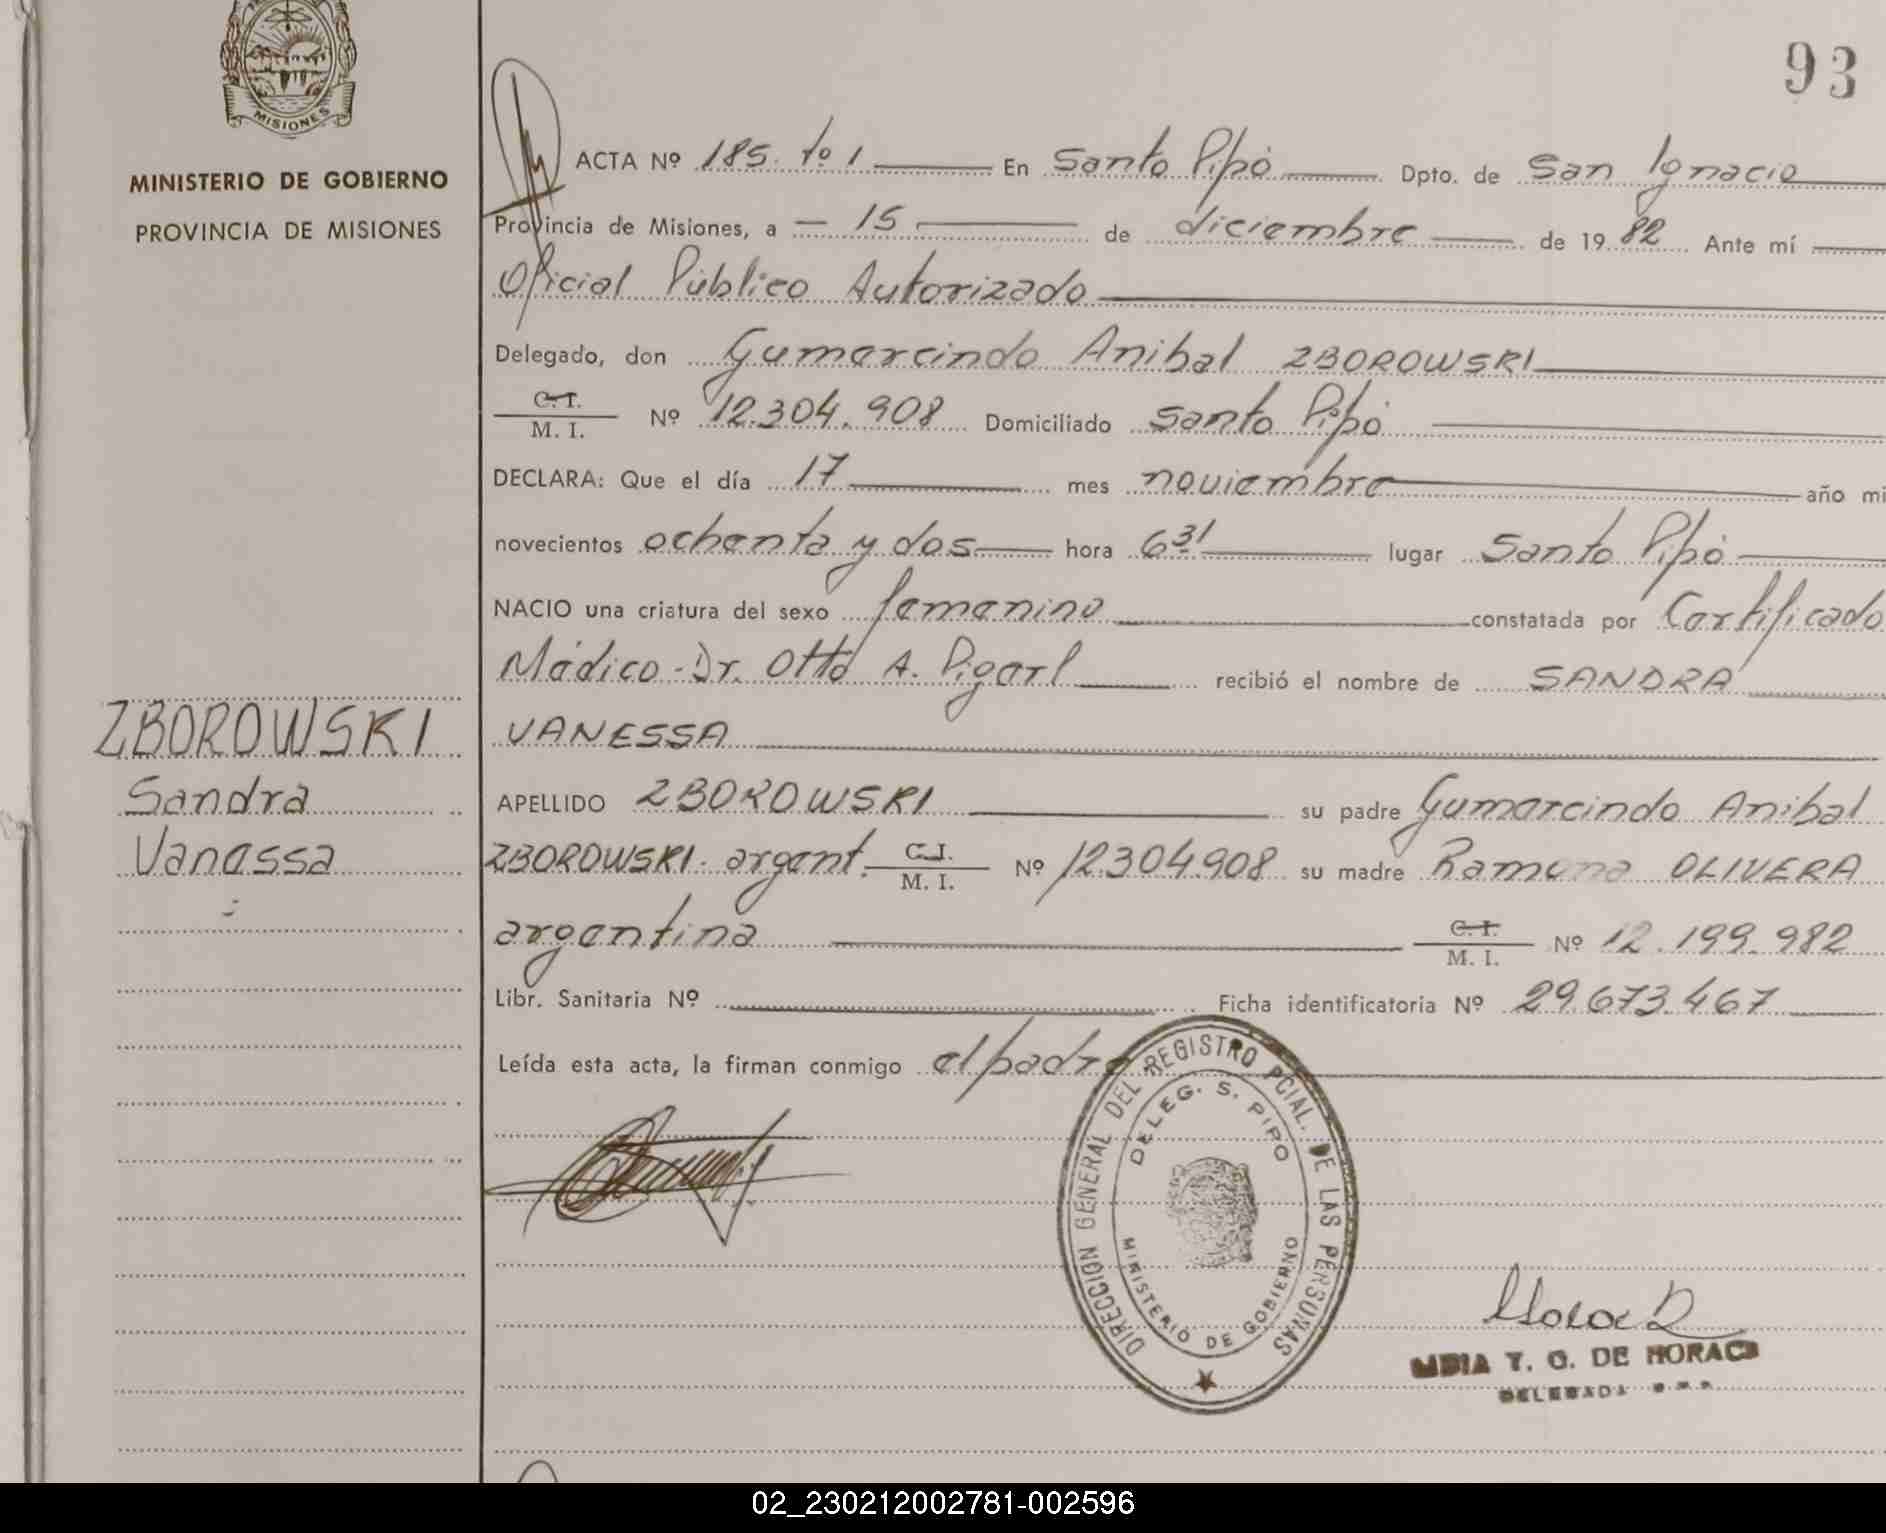 MISIONES
MINISTERIO DE GOBIERNO
PROVINCIA DE MISIONES
ZBOROWSKI
Sandra
Vanessa
93
ACTA Nº 185. tº 1 En Santo Pipó Dpto. de San Ignacio
Provincia de Misiones, a - 15 de diciembre de 1982 Ante mí
Oficial Público Autorizado
Delegado, don Gumarcindo Anibal ZBOROWSKI
C. I.
M. I. Nº 12.304.908 Domiciliado Santo Pipó
DECLARA: Que el día 17 mes noviembre año mi
novecientos ochenta y dos hora 6 31 lugar Santo Pipó
NACIO una criatura del sexo femenino constatada por Certificado
Médico - Dr. Otto A. recibió el nombre de SANDRA
VANESSA
APELLIDO ZBOROWSKI su padre Gumarcindo Anibal
ZBOROWSKI. argent. C. I. M. I. Nº 12.304.908 su madre Ramona OLIVERA
argentina C. I. M. I. Nº 12.199.982
Libr. Sanitaria Nº Ficha identificatoria Nº 29.673.467
Leída esta acta, la firman conmigo el padre
DIRECCION GENERAL DEL REGISTRO PCIAL. DE LAS PERSONAS
DELEG. S. PIPO
MINISTERIO DE GOBIERNO
T. G. DE
DELEGADA
02_230212002781-002596